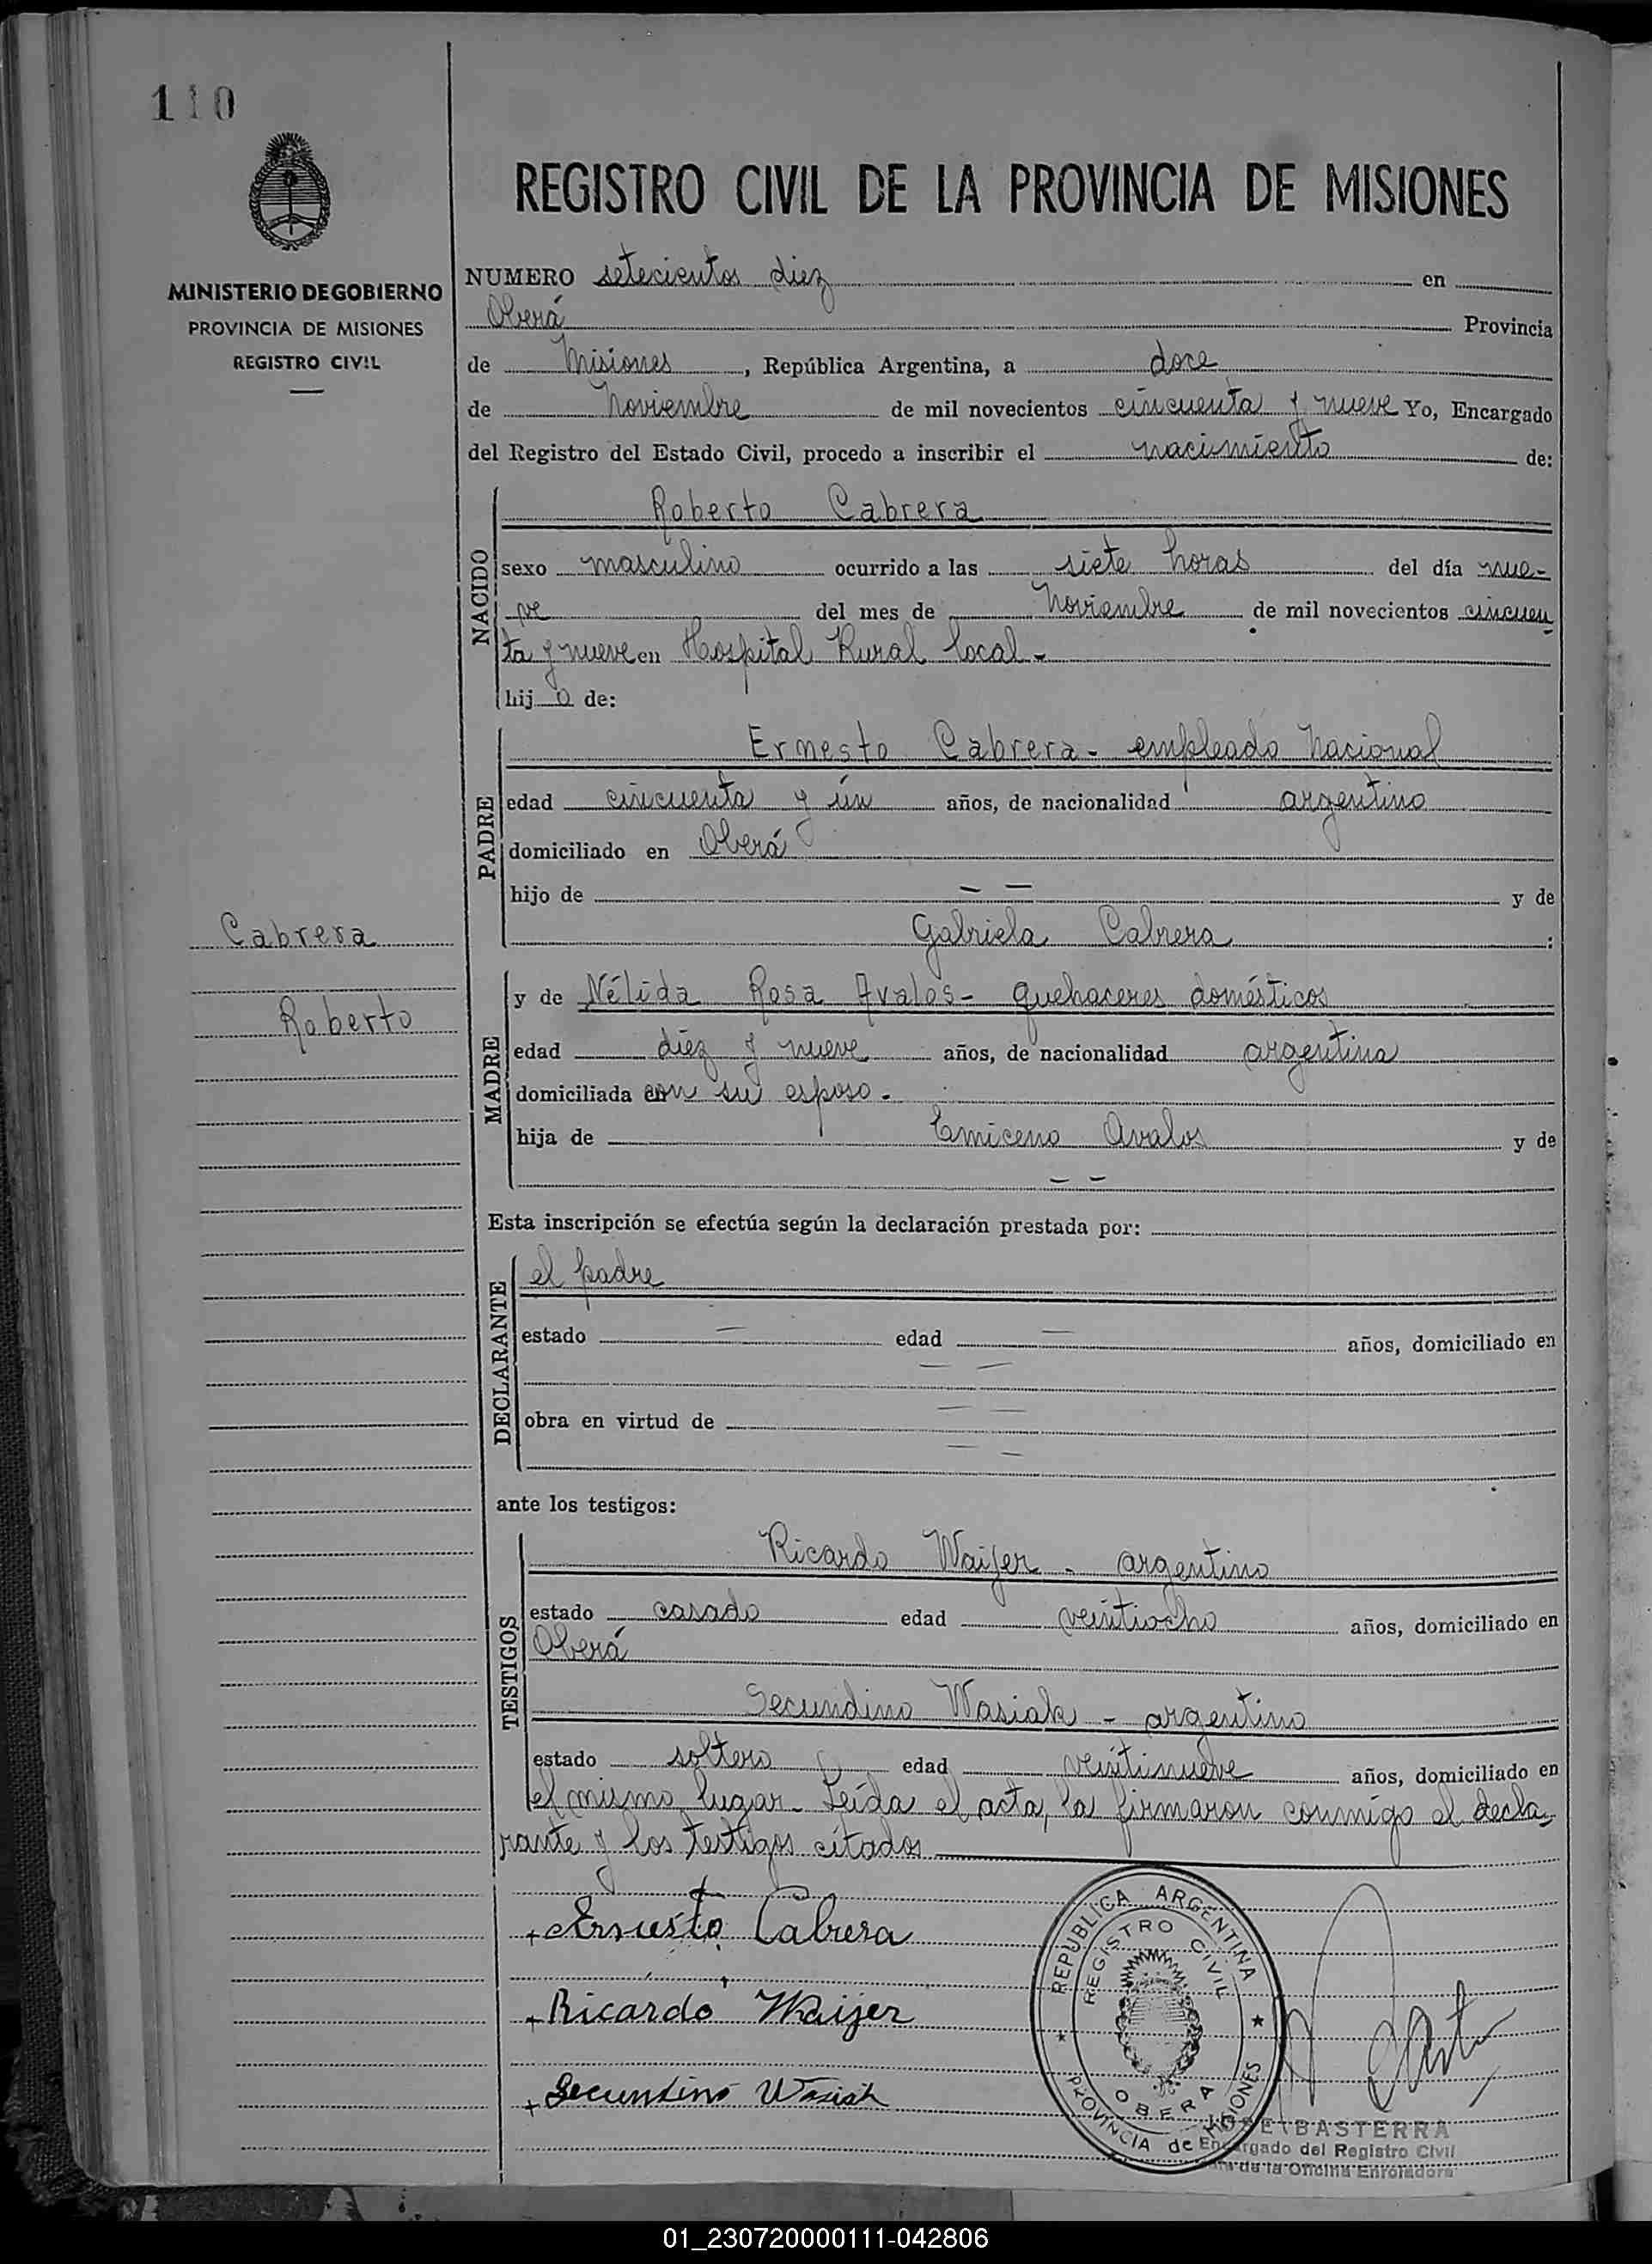 110
MINISTERIO DE GOBIERNO
PROVINCIA DE MISIONES
REGISTRO CIVIL
Cabrera
Roberto
REGISTRO CIVIL DE LA PROVINCIA DE MISIONES
NUMERO setecientos diez en
Oberá Provincia
de Misiones, República Argentina, a doce
de Noviembre de mil novecientos cincuenta y nueve Yo, Encargado
del Registro del Estado Civil, procedo a inscribir el nacimiento de:
NACIDO
Roberto Cabrera
sexo masculino ocurrido a las siete horas del día nue-
ve del mes de Noviembre de mil novecientos cincuen
ta y nueve en Hospital Rural local -
hijo de:
PADRE
Ernesto Cabrera - empleado Nacional
edad cincuenta y ún años, de nacionalidad argentino
domiciliado en Oberá
hijo de — — y de
Gabriela Cabrera :
MADRE
y de Nélida Rosa Avalos - quehaceres domésticos
edad diez y nueve años, de nacionalidad argentina
domiciliada con su esposo.
hija de Emiceno Avalos y de
— —
Esta inscripción se efectúa según la declaración prestada por:
DECLARANTE
el padre
estado — edad — años, domiciliado en
— —
obra en virtud de — —
— —
ante los testigos:
TESTIGOS
Ricardo Waijer - argentino
estado casado edad veintiocho años, domiciliado en
Oberá
Secundino Wasiak - argentino
estado soltero edad veintinueve años, domiciliado en
el mismo lugar - Leída el acta, la firmaron conmigo el decla-
rante y los testigos citados
+ Ernesto Cabrera
+ Ricardo Waijer
+ Secundino Wasiak
REPÚBLICA ARGENTINA
REGISTRO CIVIL
OBERA
PROVINCIA de MISIONES
JOSE BASTERRA
Encargado del Registro Civil
de la Oficina Enroladora
01_230720000111-042806